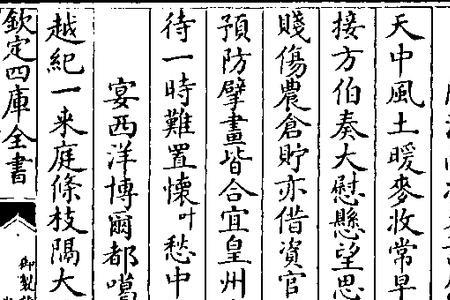 天中風土暖麥收常早
接方伯奏大慰懸望思
賤傷農倉貯亦借資官
預防擘畫皆合宜皇州
待一時難置懷叶愁中
宴西洋博爾都噶
越紀一来庭條枝隔大
欽定四庫全書
御製